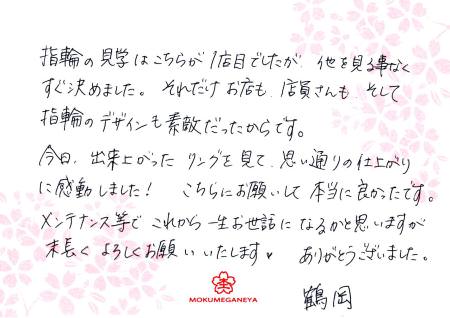 指輪の見学はこちらが1店目でしたが、他を見る事なく
すぐ決めました。それだけお店も、店員さんも、そして
指輪のデザインも素敵だったからです。
今日、出来上がったリングを見て、思い通りの仕上がり
に感動しました！こちらにお願いして本当に良かったです。
メンテナンス等でこれから一生お世話になるかと思いますが
末長くよろしくお願いいたします♥ ありがとうございました。
MOKUMEGANEYA
鶴岡